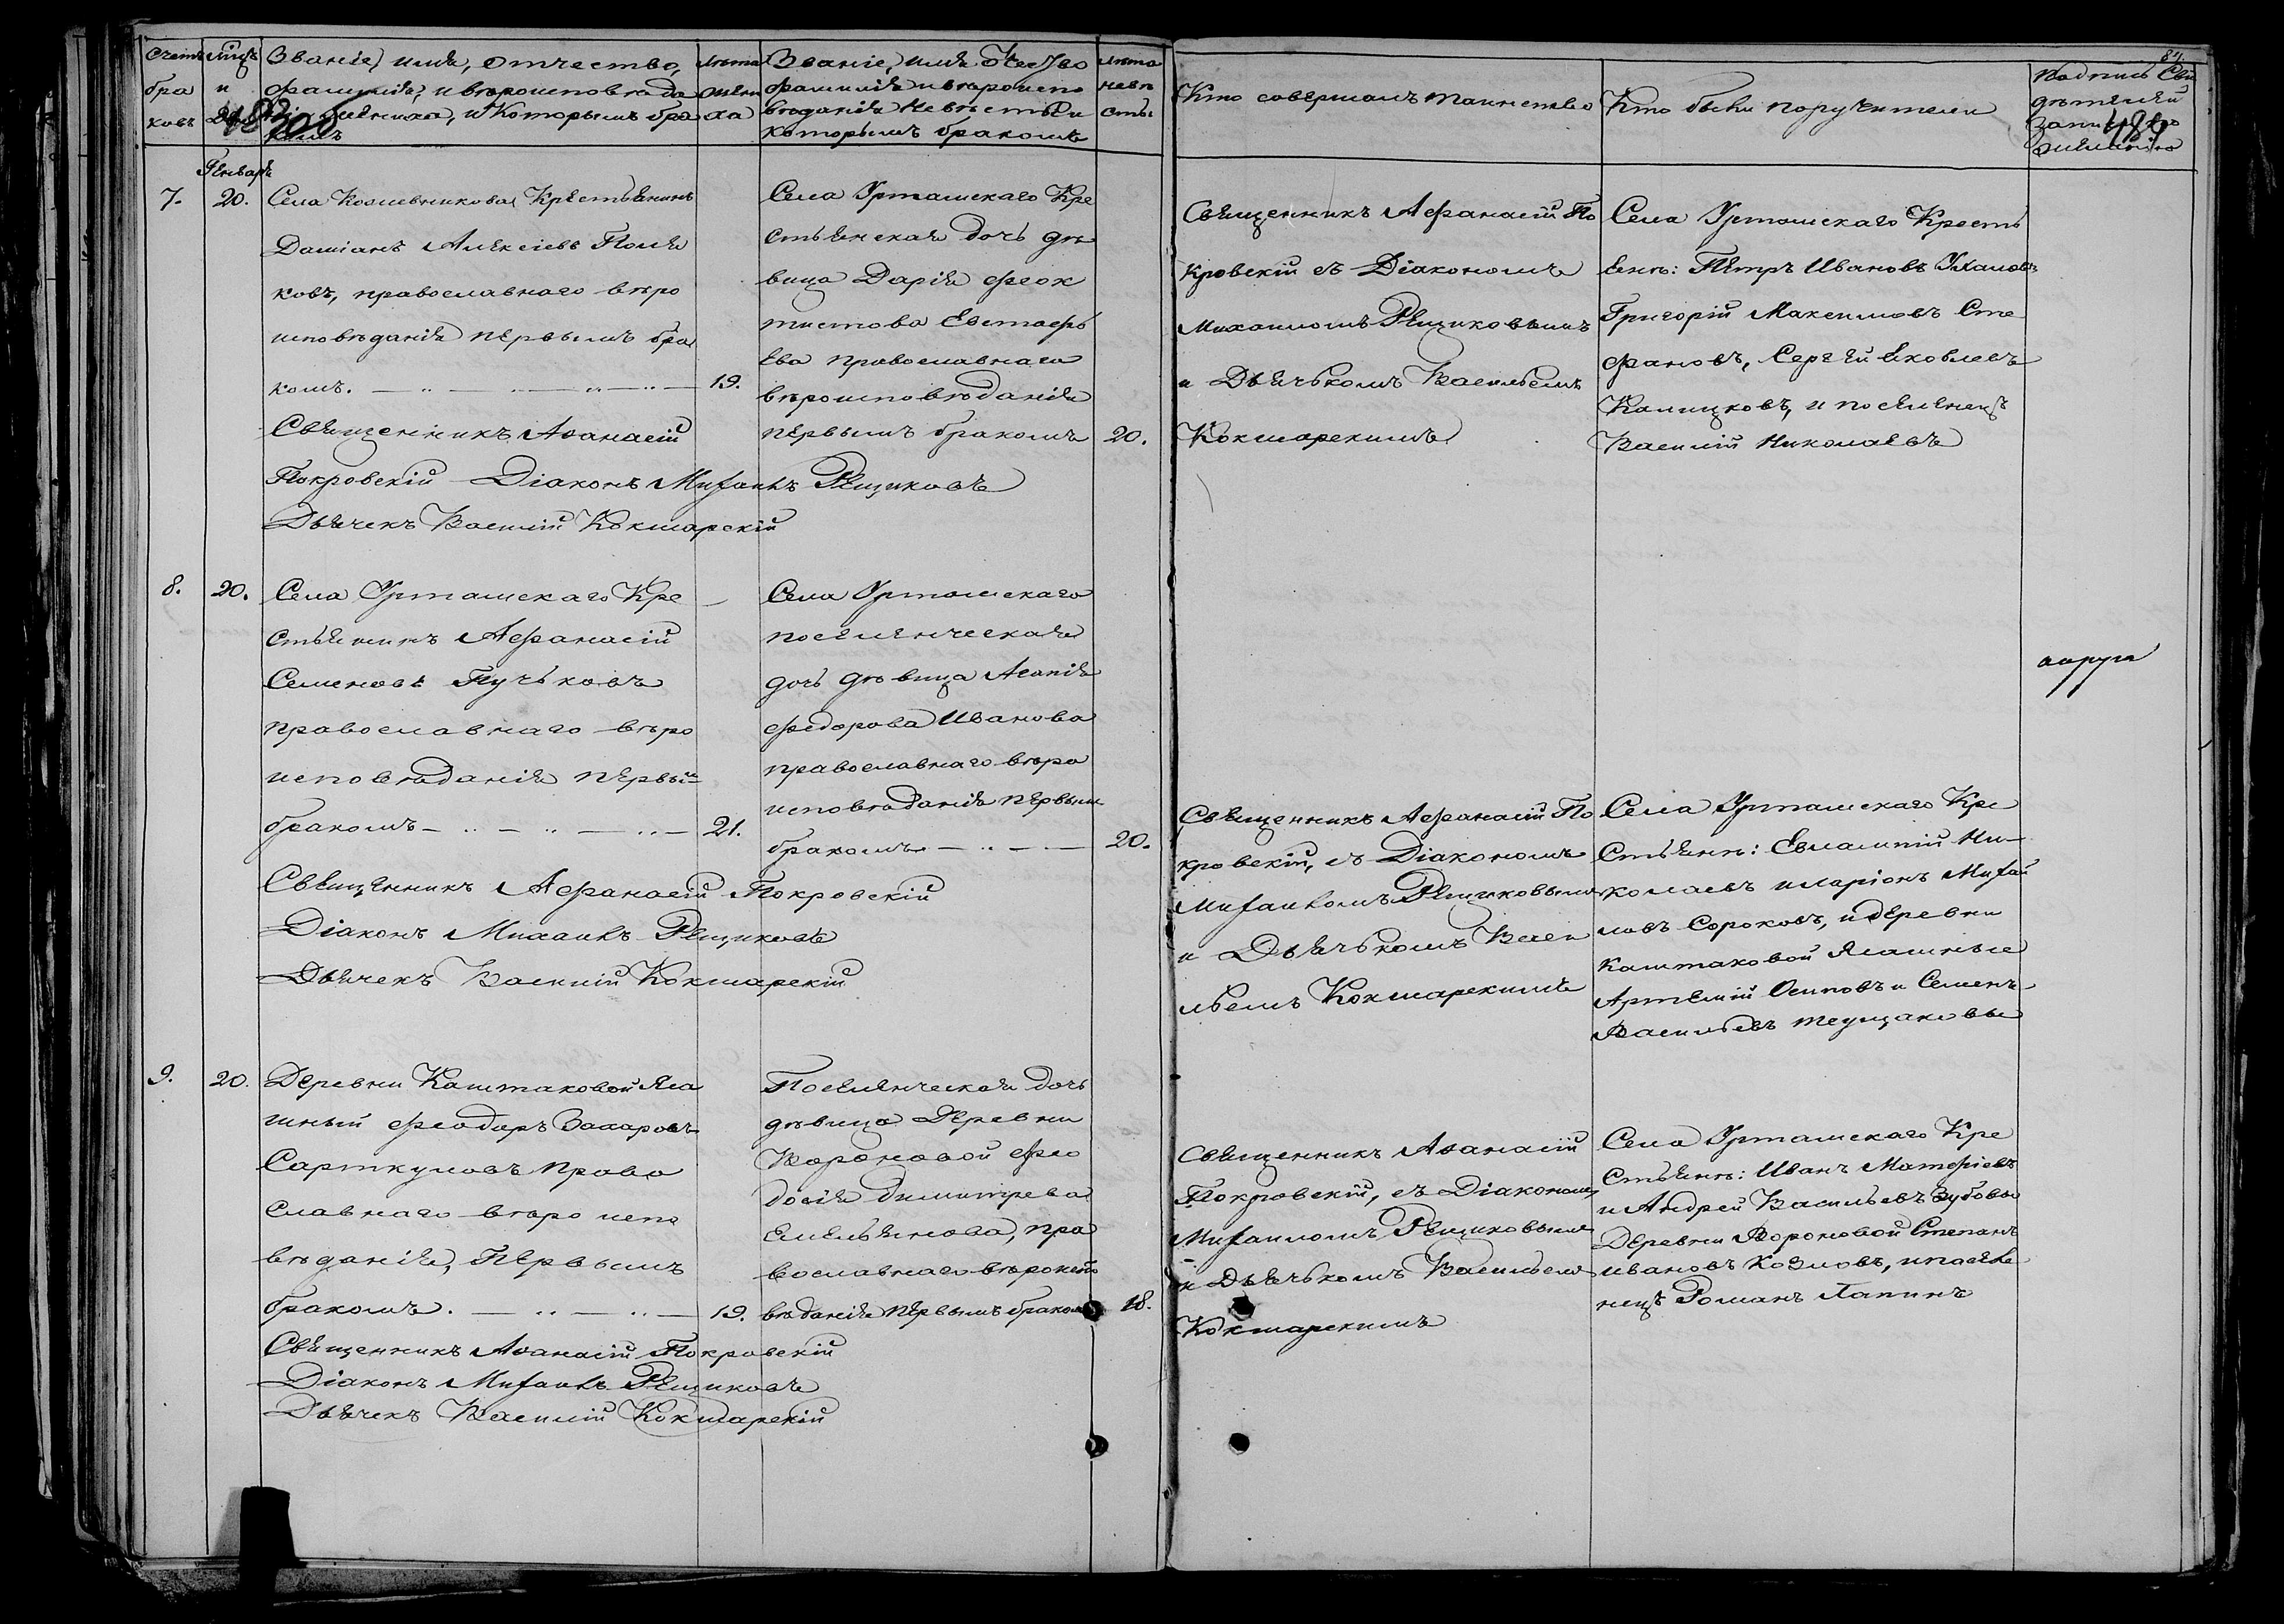 Счетъ
бра
ковъ
Званіе, имя, отчество,
фамилія, и вѣроисповѣда
ніе жениха, и которымъ бра
комъ
Лѣта
жени
ха
Званіе, имя, Отчество
фамилія и вѣроиспо
вѣданія невѣсты и
которымъ бракомъ
Лѣта
невѣ
сты
Кто совершалъ таинство
Кто были поручители
84.
Подпись Сви
дѣтелей
записи по
желанію
489
Январь
7.
20.
Села Кожевникова Крестьянинъ
Даміанъ Алексіевъ Поля
ковъ, православнаго вѣро
исповѣданія первымъ бра
комъ.
19.
Священникъ Аѳанасій
Покровскій Діаконъ Михаилъ Рещиковъ
Дьячекъ Василій Кокшарскій
Села Урташскаго Кре
стьянская дочь дѣ
вица Дарія Феок
тистова Евстафь
ева православнаго
вѣроисповѣданія
первымъ бракомъ
20.
Священникъ Афанасій По
кровскій съ Діакономъ
Михаиломъ Рещиковымъ
и Дьячькомъ Васильемъ
Кокшарскимъ
Села Урташскаго Кресть
яне: Петръ Ивановъ
Григорій Максимовъ Сте
фановъ, Сергѣй Яковлевъ
Калицковъ, и поселенецъ
Василій Николаевъ
8.
20.
Села Урташскаго Кре
стьянинъ Афанасій
Семеновъ Пучьковъ
православнаго вѣро
исповѣданія первымъ
бракомъ
21.
Священникъ Афанасій Покровскій
Діаконъ Михаилъ Рещиковъ
Дьячекъ Василій Кокшарскій
Села Урташскаго
поселенческая
дочь дѣвица
Федорова Иванова
православнаго вѣро
исповѣданія первымъ
бракомъ
20.
Священникъ Афанасій По
кровскій, съ Діакономъ
Михаиломъ Рещиковымъ
и Дьячькомъ Васи
льемъ Кокшарскимъ
Села Урташскаго Кре
стьяне: Евлампій Ни
колаевъ Иларіонъ Михаи
ловъ Сороковъ, и деревни
Каштаковой Ясашные
Артемій Осиповъ и Семенъ
Васильевъ
9.
20.
Деревни Каштаковой Яса
шный Феодоръ Захаровъ
Сарткуловъ право
славнаго вѣро испо
вѣданія, Первымъ
бракомъ.
19.
Священникъ Аѳанасій Покровскій
Діаконъ Михаилъ Рещиковъ
Дьячекъ Василій Кокшарскій
Поселенческая дочь
дѣвица Деревни
Вороновой Фео
досія Димитрева
Емельянова, пра
вославнаго вѣроиспо
вѣданія первымъ бракомъ
18.
Священникъ Аѳанасій
Покровскій, съ Діакономъ
Михаиломъ Рещиковымъ
и Дьячькомъ Васильемъ
Кокшарскимъ
Села Урташскаго Кре
стьяне: Иванъ Матфіевъ
и Андрей Васильевъ Зубовы
Деревни Вороновой Степанъ
Ивановъ Козловъ, и поселе
нецъ Романъ Лапинъ